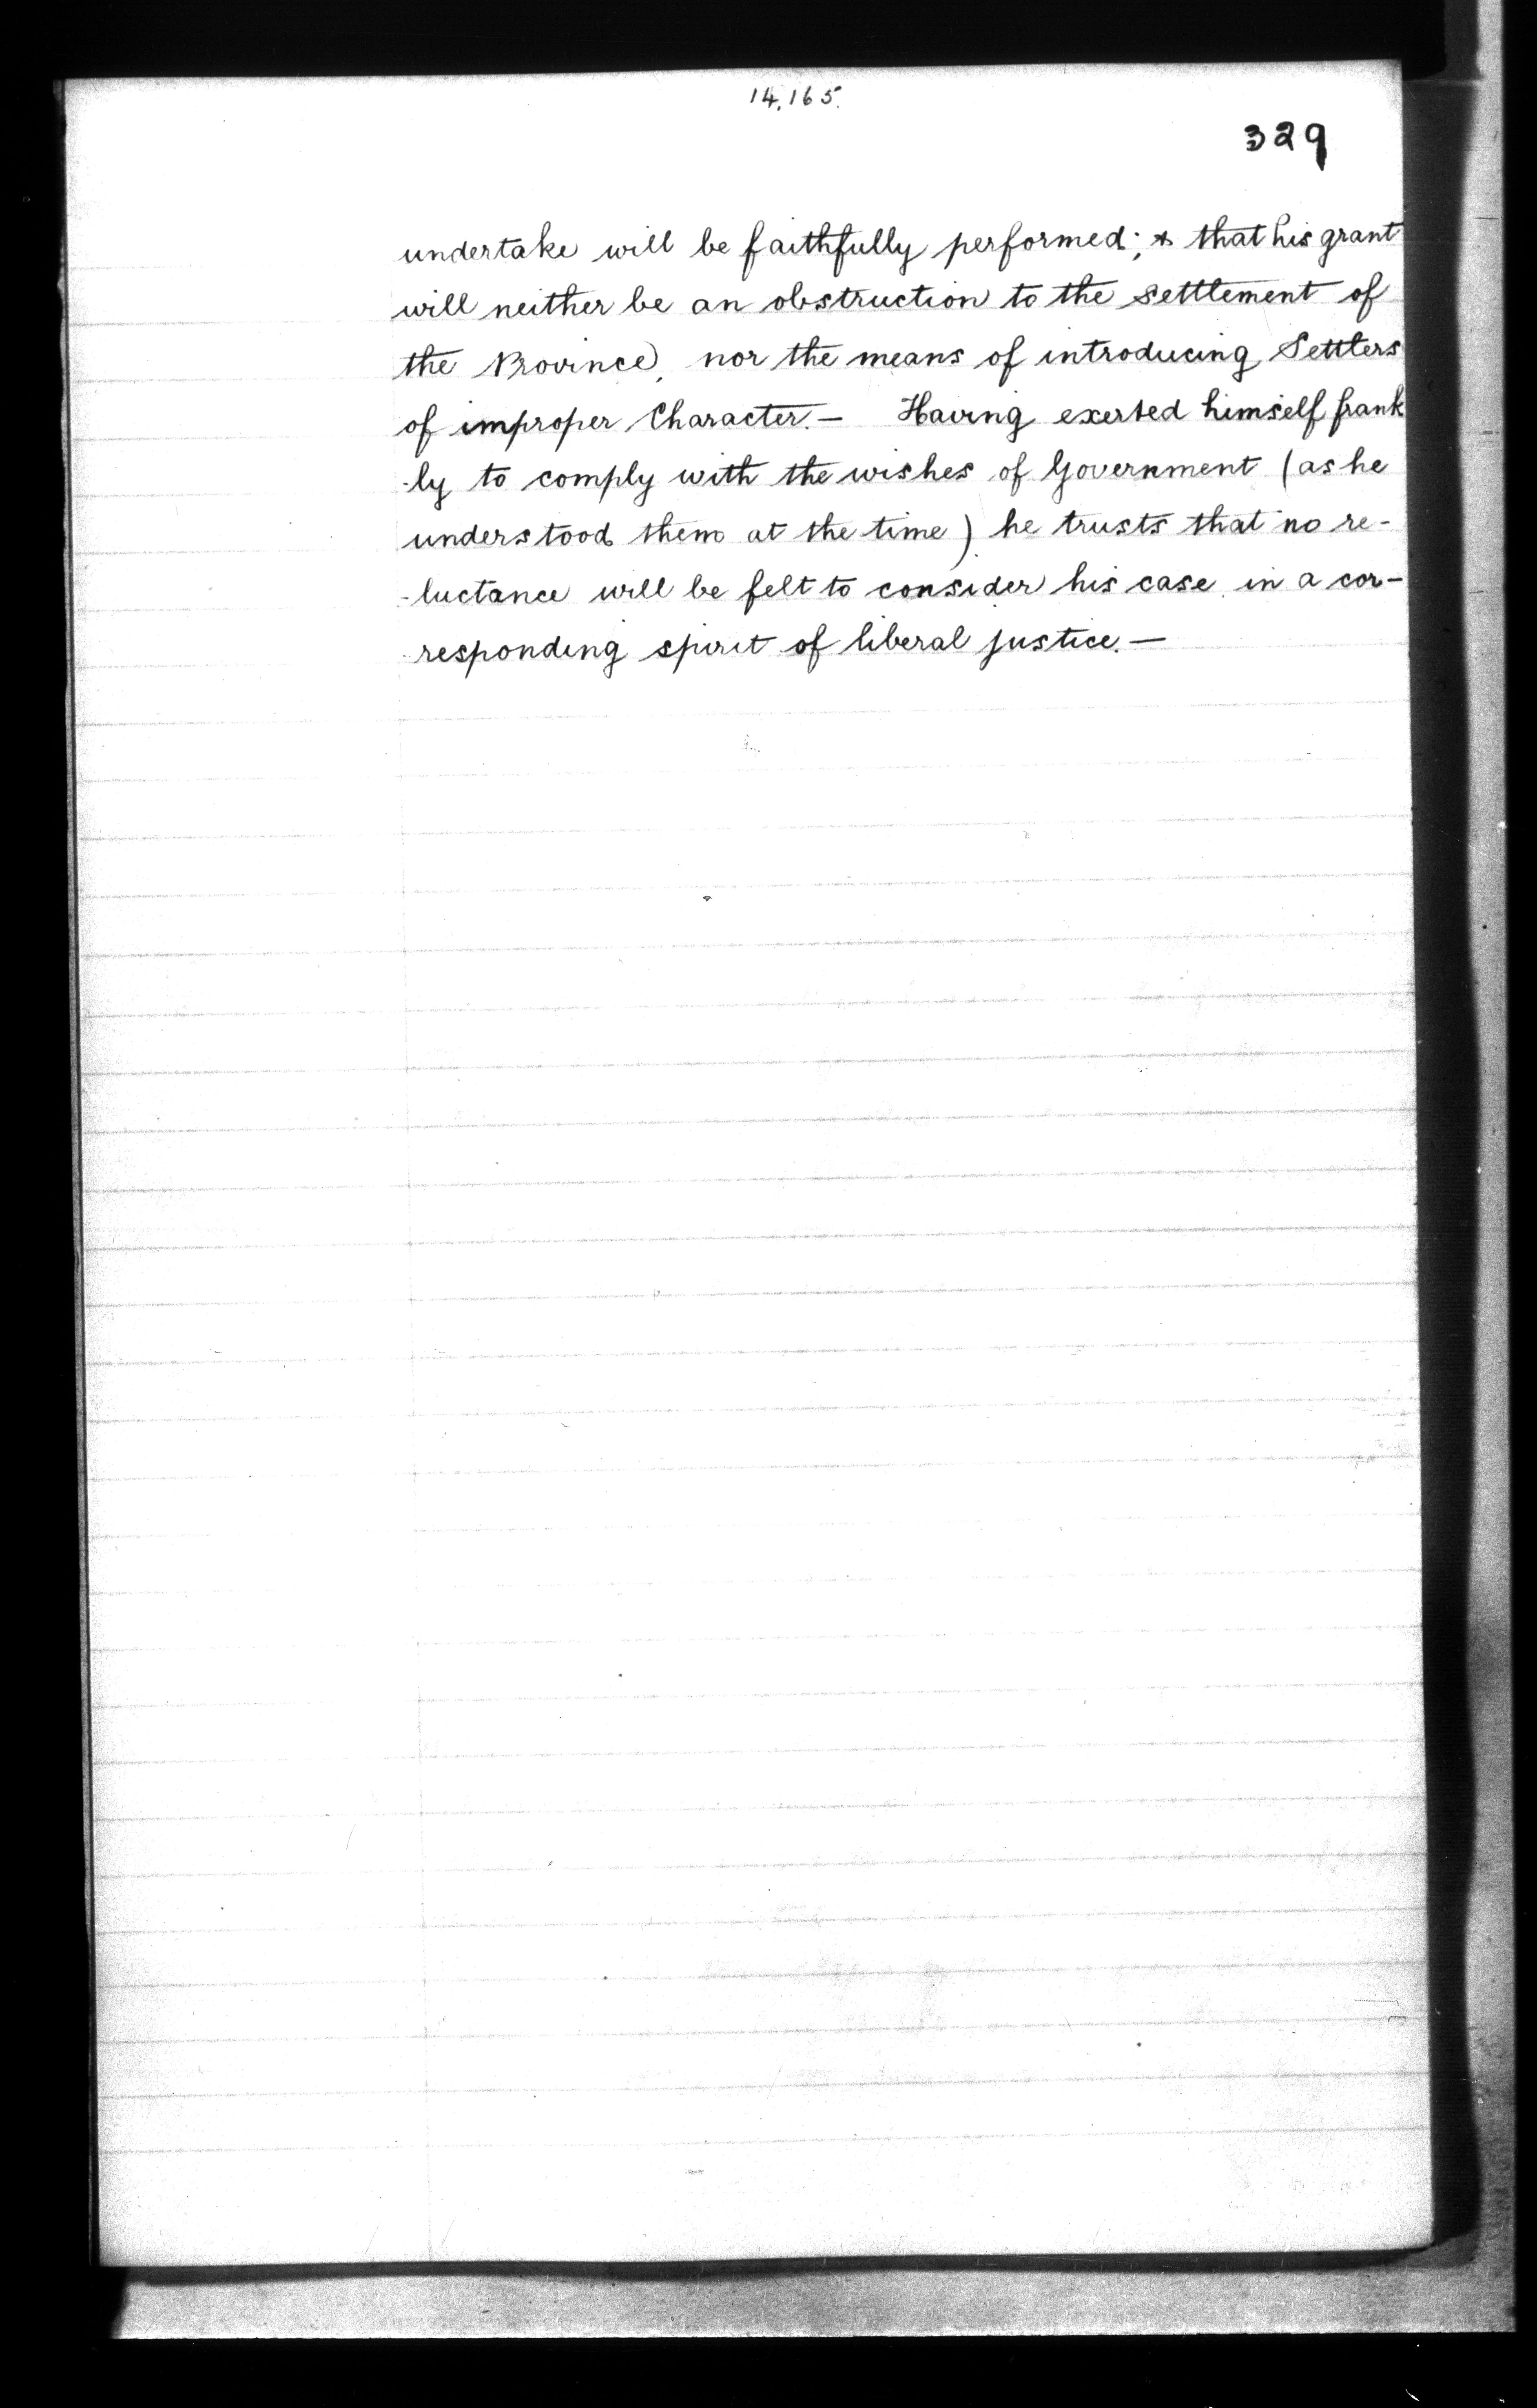 14,165.
329
undertake will be faithfully performed; & that his grant
will neither be an obstruction to the settlement of
the Province, nor the means of introducing Settlers
of improper Character. — Having exerted himself frank
-ly to comply with the wishes of Government (as he
understood them at the time) he trusts that no re-
-luctance will be felt to consider his case in a cor-
-responding spirit of liberal justice. —